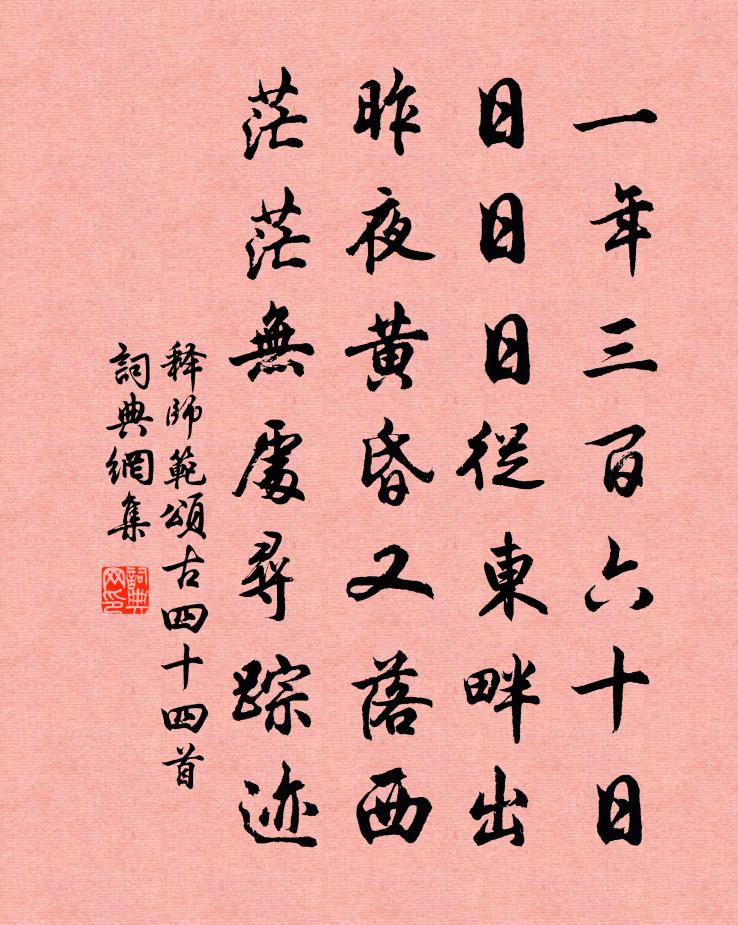 一年三百六十日
日日日從東畔出
昨夜黄昏又落西
茫茫無處尋踪迹
释師範頌古四十四首
詞典網集
詞典网印